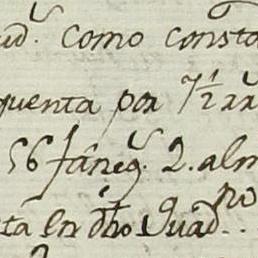 ud.^s como consta
quenta por 7½ rr^s
56 fâneg.^s 2. alm
tá en d̃ho Quad.^no